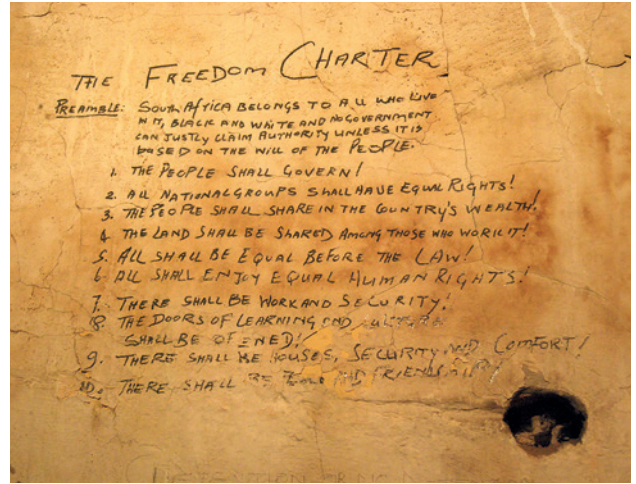 THE FREEDOM CHARTER
PREAMBLE: SOUTH AFRICA BELONGS TO ALL WHO LIVE
IN IT, BLACK AND WHITE AND NO GOVERNMENT
CAN JUSTLY CLAIM AUTHORITY UNLESS IT IS
BASED ON THE WILL OF THE PEOPLE.
1. THE PEOPLE SHALL GOVERN!
2. ALL NATIONAL GROUPS SHALL HAVE EQUAL RIGHTS!
3. THE PEOPLE SHALL SHARE IN THE COUNTRY'S WEALTH!
4. THE LAND SHALL BE SHARED AMONG THOSE WHO WORK IT!
5. ALL SHALL BE EQUAL BEFORE THE LAW!
6. ALL SHALL ENJOY EQUAL HUMAN RIGHTS!
7. THERE SHALL BE WORK AND SECURITY!
8. THE DOORS OF LEARNING AND
SHALL BE OPENED!
9. THERE SHALL BE HOUSES, SECURITY AND COMFORT!
10. THERE SHALL BE AND FRIENDSHIP!
DETENTION OR NO